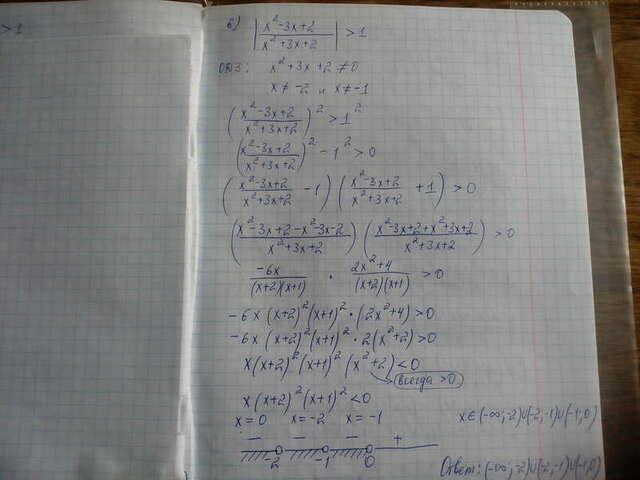 >1
б) |(x²-3x+2)/(x²+3x+2)| >1
ОДЗ: x²+3x+2≠0
x≠-2 и x≠-1
((x²-3x+2)/(x²+3x+2))² >1²
((x²-3x+2)/(x²+3x+2))² -1² >0
((x²-3x+2)/(x²+3x+2) -1) ((x²-3x+2)/(x²+3x+2) +1) >0
((x²-3x+2-x²-3x-2)/(x²+3x+2)) ((x²-3x+2+x²+3x+2)/(x²+3x+2)) >0
-6x/((x+2)(x+1)) · (2x²+4)/((x+2)(x+1)) >0
-6x(x+2)²(x+1)²·(2x²+4)>0
-6x(x+2)²(x+1)²·2(x²+2)>0
x(x+2)²(x+1)²(x²+2)<0
всегда >0
x(x+2)²(x+1)²<0
x=0 x=-2 x=-1
x∈(-∞;-2)∪(-2;-1)∪(-1;0)
- - - +
-2 -1 0
Ответ: (-∞;-2)∪(-2;-1)∪(-1;0)